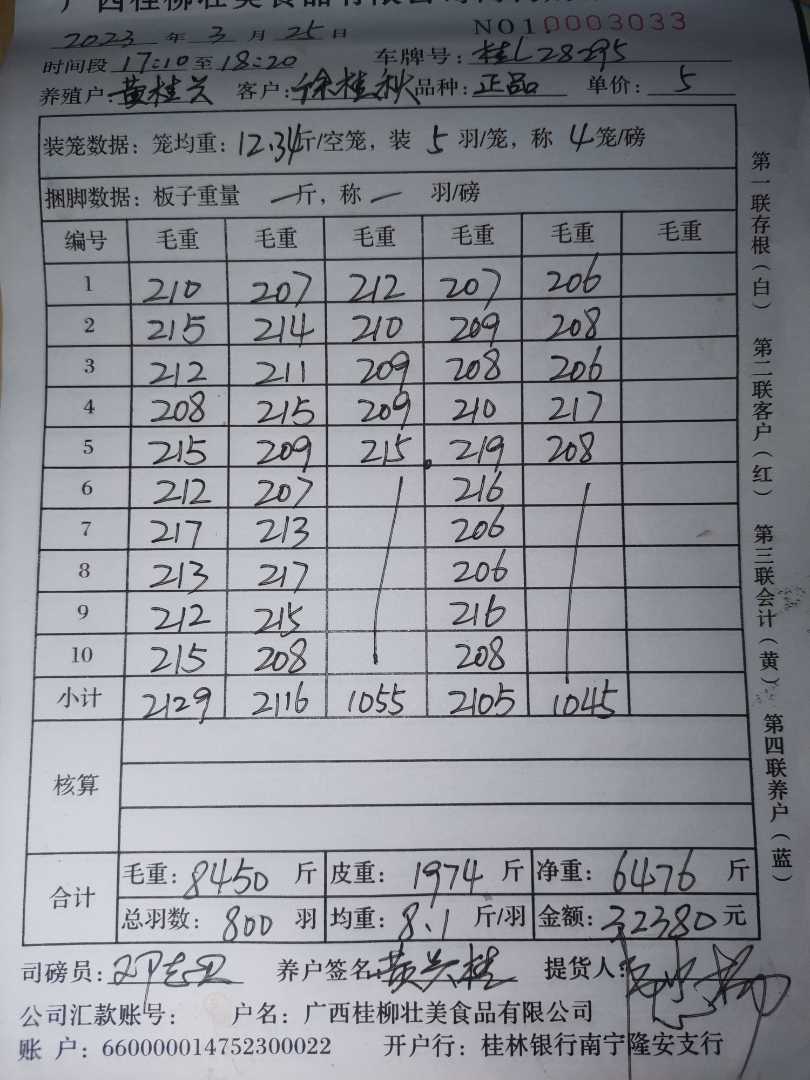 广西桂柳壮美食品有限公司
2023 年 3 月 25 日 NO10003033
时间段 17:10 至 18:20 车牌号: 桂L28295
养殖户: 黄桂兴 客户: 徐桂秋 品种: 正品 单价: 5
装笼数据: 笼均重: 12.34斤/空笼, 装 5 羽/笼, 称 4 笼/磅
捆脚数据: 板子重量 一斤, 称 一 羽/磅
编号 毛重 毛重 毛重 毛重 毛重 毛重
1 210 207 212 207 206
2 215 214 210 209 208
3 212 211 209 208 206
4 208 215 209 210 217
5 215 209 215 219 208
6 212 207 216
7 217 213 206
8 213 217 206
9 212 215 216
10 215 208 208
小计 2129 2116 1055 2105 1045
核算
合计 毛重: 8450 斤 皮重: 1974 斤 净重: 6476 斤
总羽数: 800 羽 均重: 8.1 斤/羽 金额: 32380 元
司磅员: 养户签名: 黄兴桂 提货人:
公司汇款账号: 户名: 广西桂柳壮美食品有限公司
账 户: 660000014752300022 开户行: 桂林银行南宁隆安支行
第一联存根(白) 第二联客户(红) 第三联会计(黄) 第四联养户(蓝)